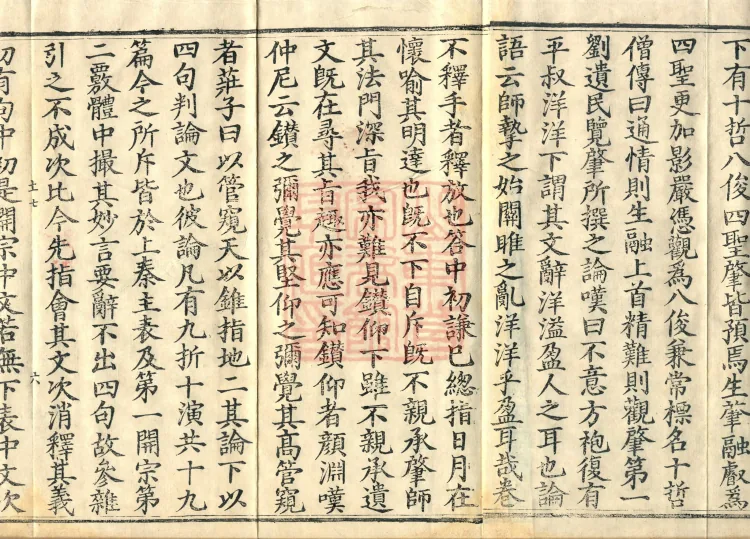 下有十哲八俊四聖肇皆預焉生肇融叡為
四聖更加影嚴憑觀為八俊兼常標名十哲
僧傳曰通情則生融上首精難則觀肇第一
劉遺民覽肇所撰之論嘆曰不意方袍復有
平叔洋洋下謂其文辭洋溢盈人之耳也論
語云師摯之始關雎之亂洋洋乎盈耳哉卷
不釋手者釋放也答中初謙已總指日月在
懷喻其明達也既不下自斥既不親承肇師
其法門深旨我亦難見鑚仰下雖不親承遺
文既在尋其旨趣亦應可知鑚仰者顔淵嘆
仲尼云鑚之彌覺其堅仰之彌覺其高管窺
者莊子曰以管窺天以錐指地二其論下以
四句判論文也彼論凡有九折十演共十九
篇今之所斥皆於上秦主表及第一開宗第
二覈體中撮其妙言要辭不出四句故參雜
引之不成次比今先指會其文次消釋其義
土七 六
初有句中初是開宗中文若無下表中文次